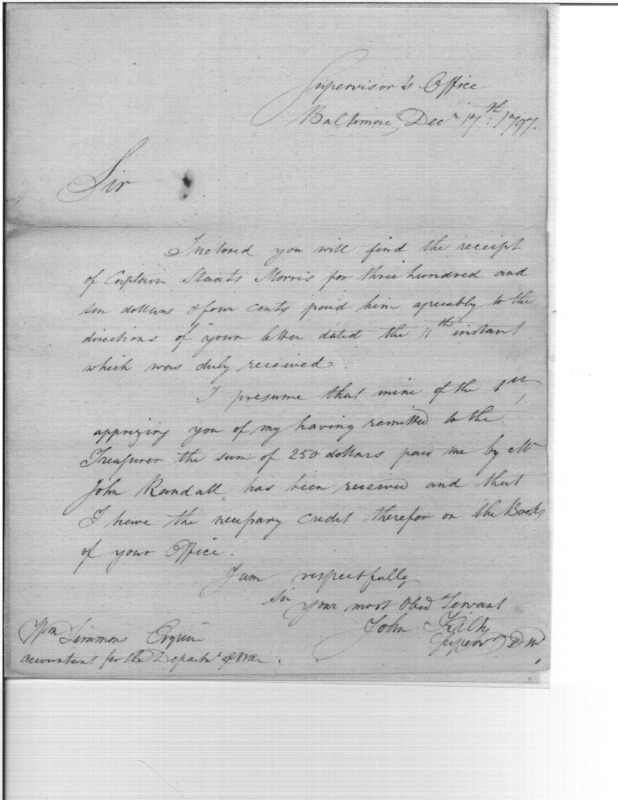 Supervisor's Office
Baltimore, Decr 17th: 1797.
Sir
Inclosed you will find the receipt
of Captain Staats Morris for three hundred and
ten dollars & four cents paid him agreeably to the
directions of your letter dated the 11th instant
which was duly received.
I presume that mine of the 1st,
apprizing you of my having remitted to the
Treasurer the sum of 250 dollars paid me by Mr
John Randall has been received and that
I have the necessary credit therefor on the Books
of your Office.
I am respectfully
Sir
Your most Obed Servant
John Kilty
Superv
Wm Simmons Esquire
Accountant for the Departt of War.